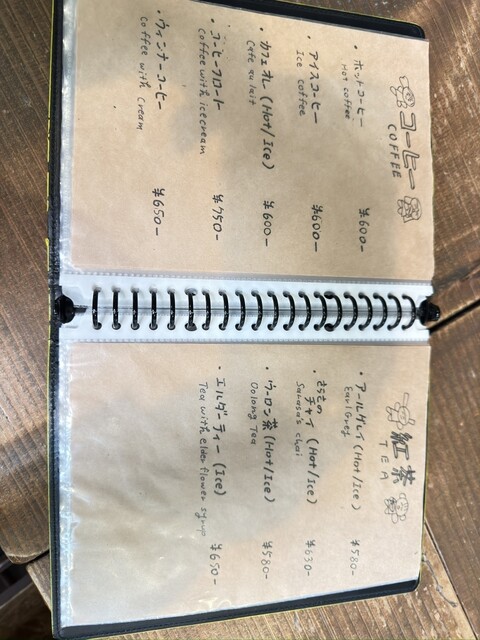 コーヒー
COFFEE
・ホットコーヒー ¥600-
Hot coffee
・アイスコーヒー ¥600-
Ice coffee
・カフェオレ (Hot/Ice) ¥600-
Cafe au lait
・コーヒーフロート ¥750-
Coffee with icecream
・ウィンナーコーヒー ¥650-
Coffee with Cream
紅茶
TEA
・アールグレイ (Hot/Ice) ¥580-
Earl Grey
・さらさのチャイ (Hot/Ice) ¥630-
Sarasa's chai
・ウーロン茶 (Hot/Ice) ¥580-
Oolong Tea
・エルダーティー (Ice) ¥650-
Tea with elder flower syrup